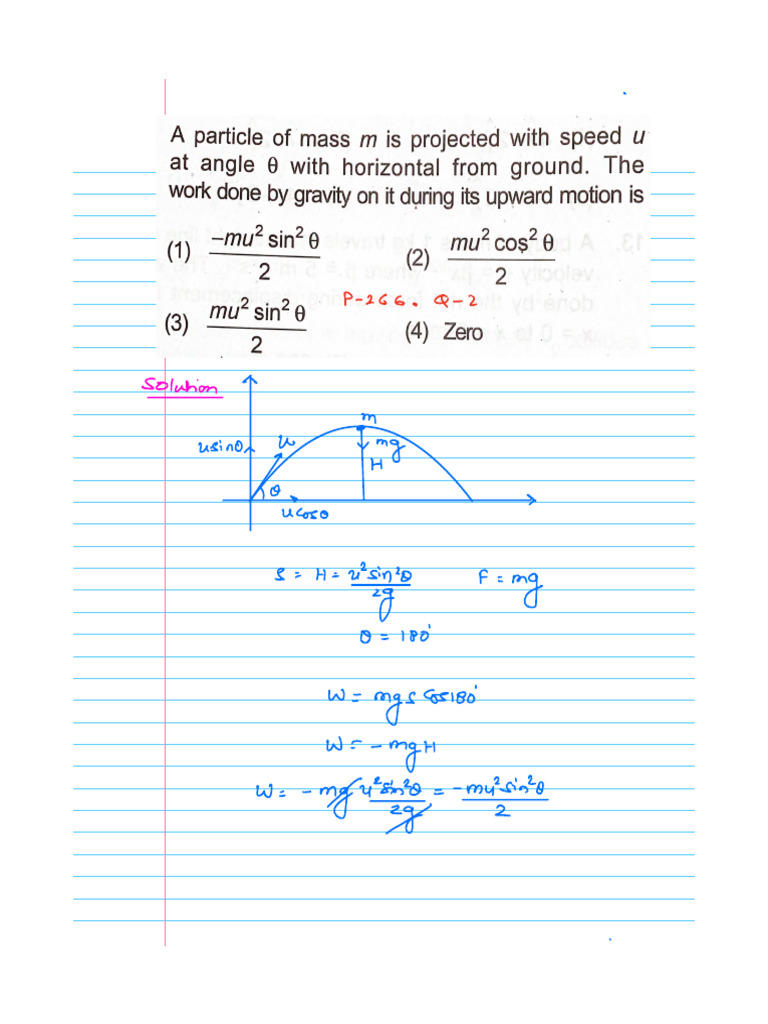 A particle of mass m is projected with speed u
at angle θ with horizontal from ground. The
work done by gravity on it during its upward motion is
(1) −mu² sin² θ / 2 (2) mu² cos² θ / 2
P-266. Q-2
(3) mu² sin² θ / 2 (4) Zero
Solution
m
usinθ u mg
H
θ
u cosθ
S = H = u² sin²θ / 2g F = mg
θ = 180°
W = mg s Cos180°
W = − mgH
W = − mg u² sin²θ / 2g = − mu² sin²θ / 2